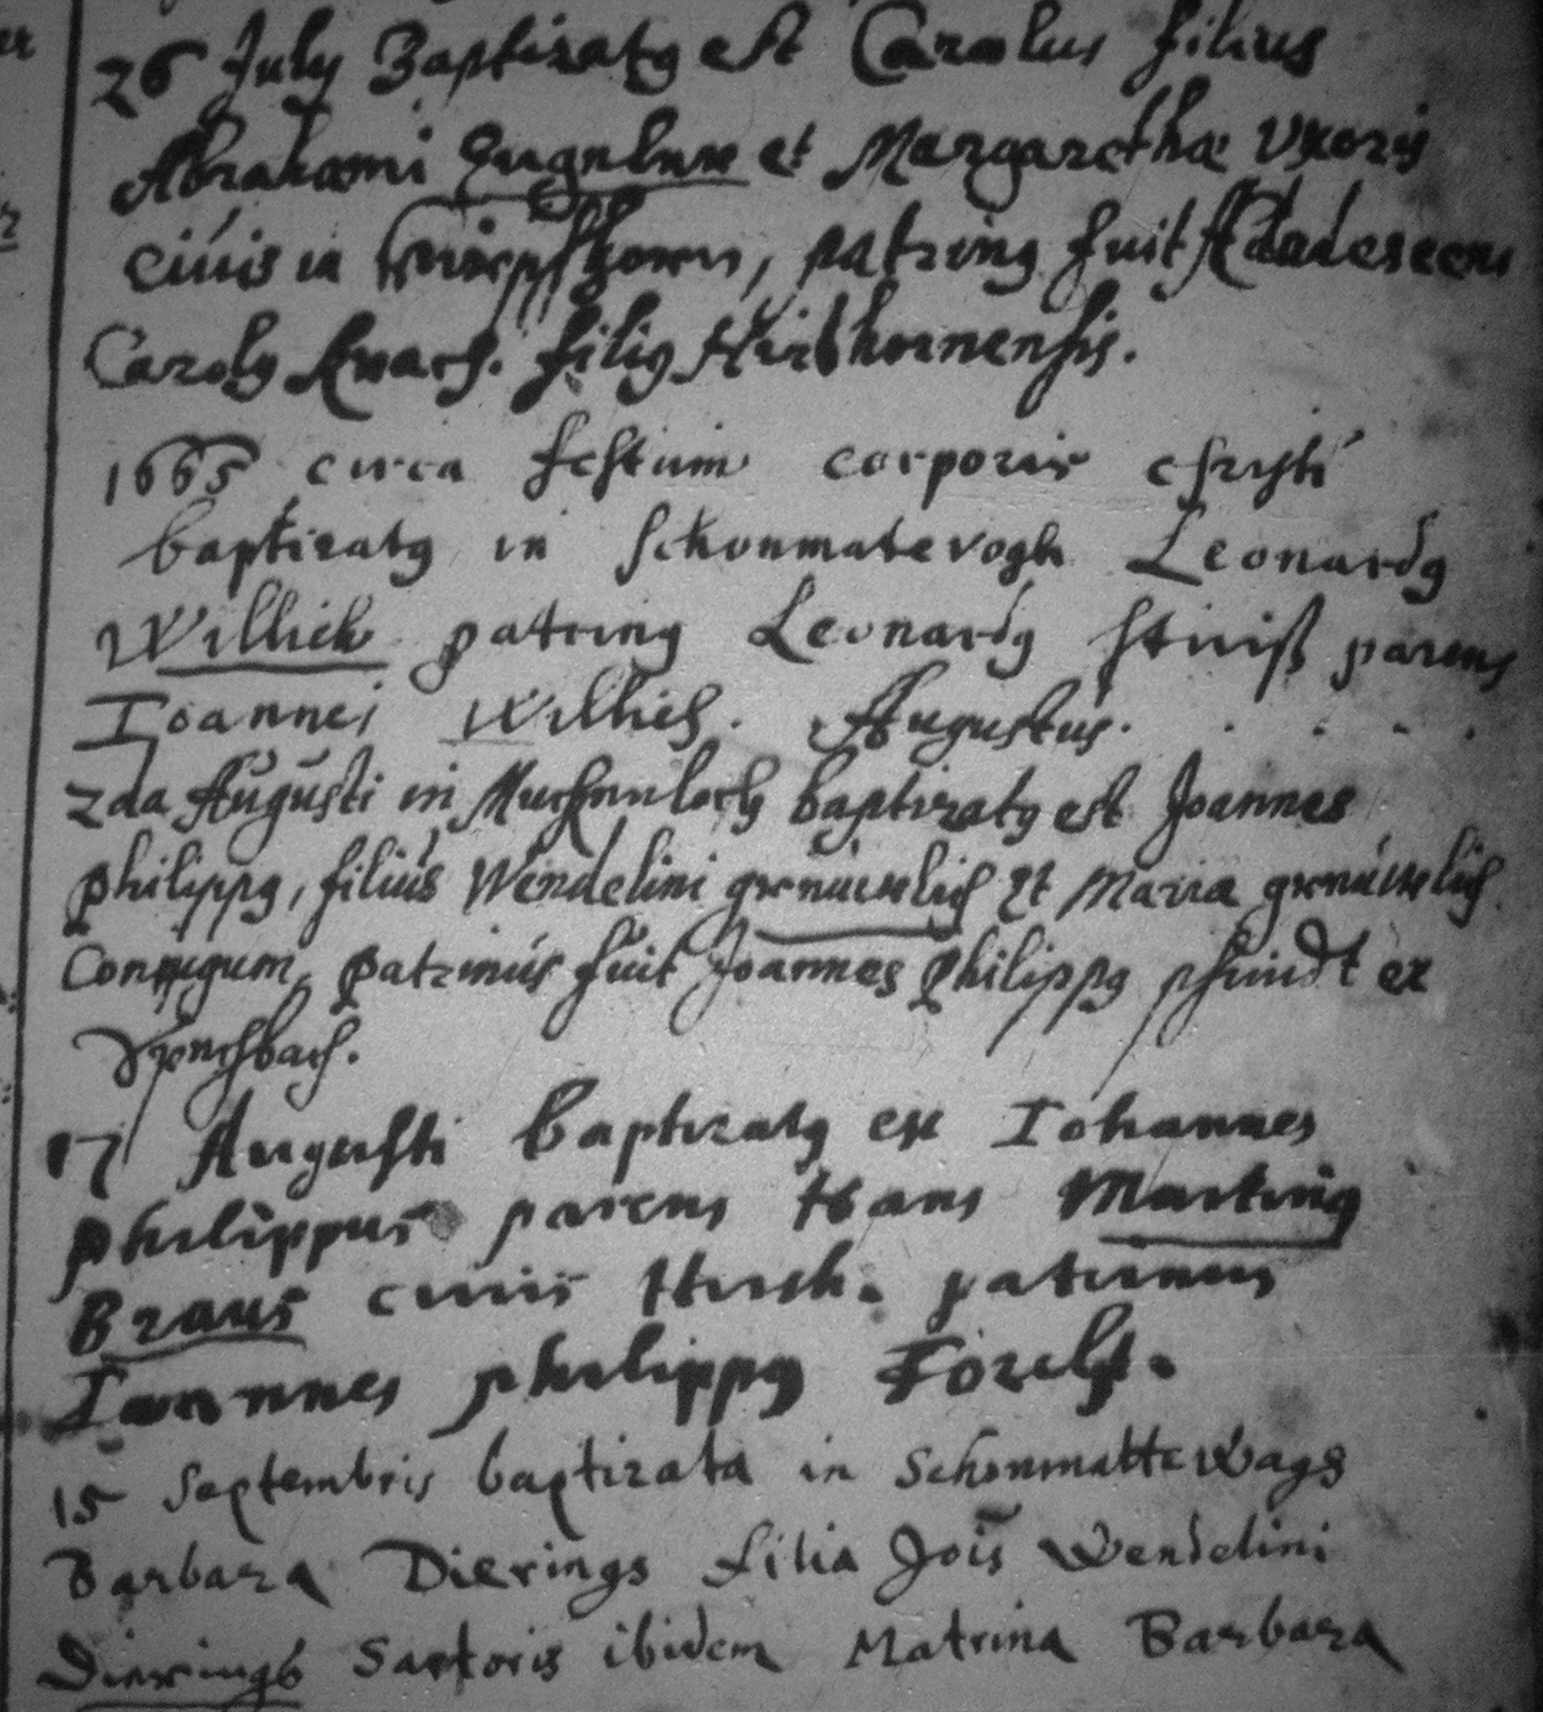 26 July Baptizatus est Carolus filius
Abrahami et Margarethæ Uxoris
civis in Hirschhorn, patrinus fuit Adolescens
Carolus filius Hirshornensis.
1665 circa festum corporis christi
baptizatus in Schonmatevogh Leonardus
Willich patrinus Leonardus parens
Ioannes Willich. Augustus.
2da Augusti in baptizatus est Joannes
philippus, filius Wendelini et Maria
Coniugum, patrinus fuit Joannes philippus ex
17 Augusti baptizatus est Iohannes
philippus parens Hans Martinus
Braus civis Hirsh. patrinus
Ioannes philippus
15 Septembris baptizata in Schonmattewags
Barbara Dierings filia Jois Wendelini
Dierings Sartoris ibidem Matrina Barbara